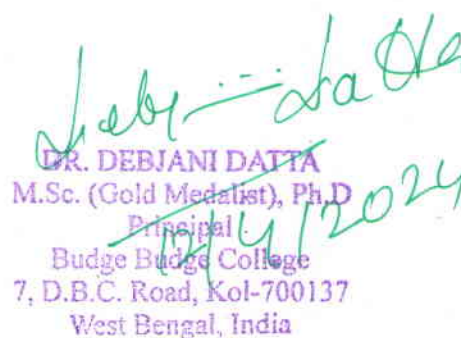 Debjani Datta
DR. DEBJANI DATTA
M.Sc. (Gold Medalist), Ph.D
Principal
12/4/2024
Budge Budge College
7, D.B.C. Road, Kol-700137
West Bengal, India